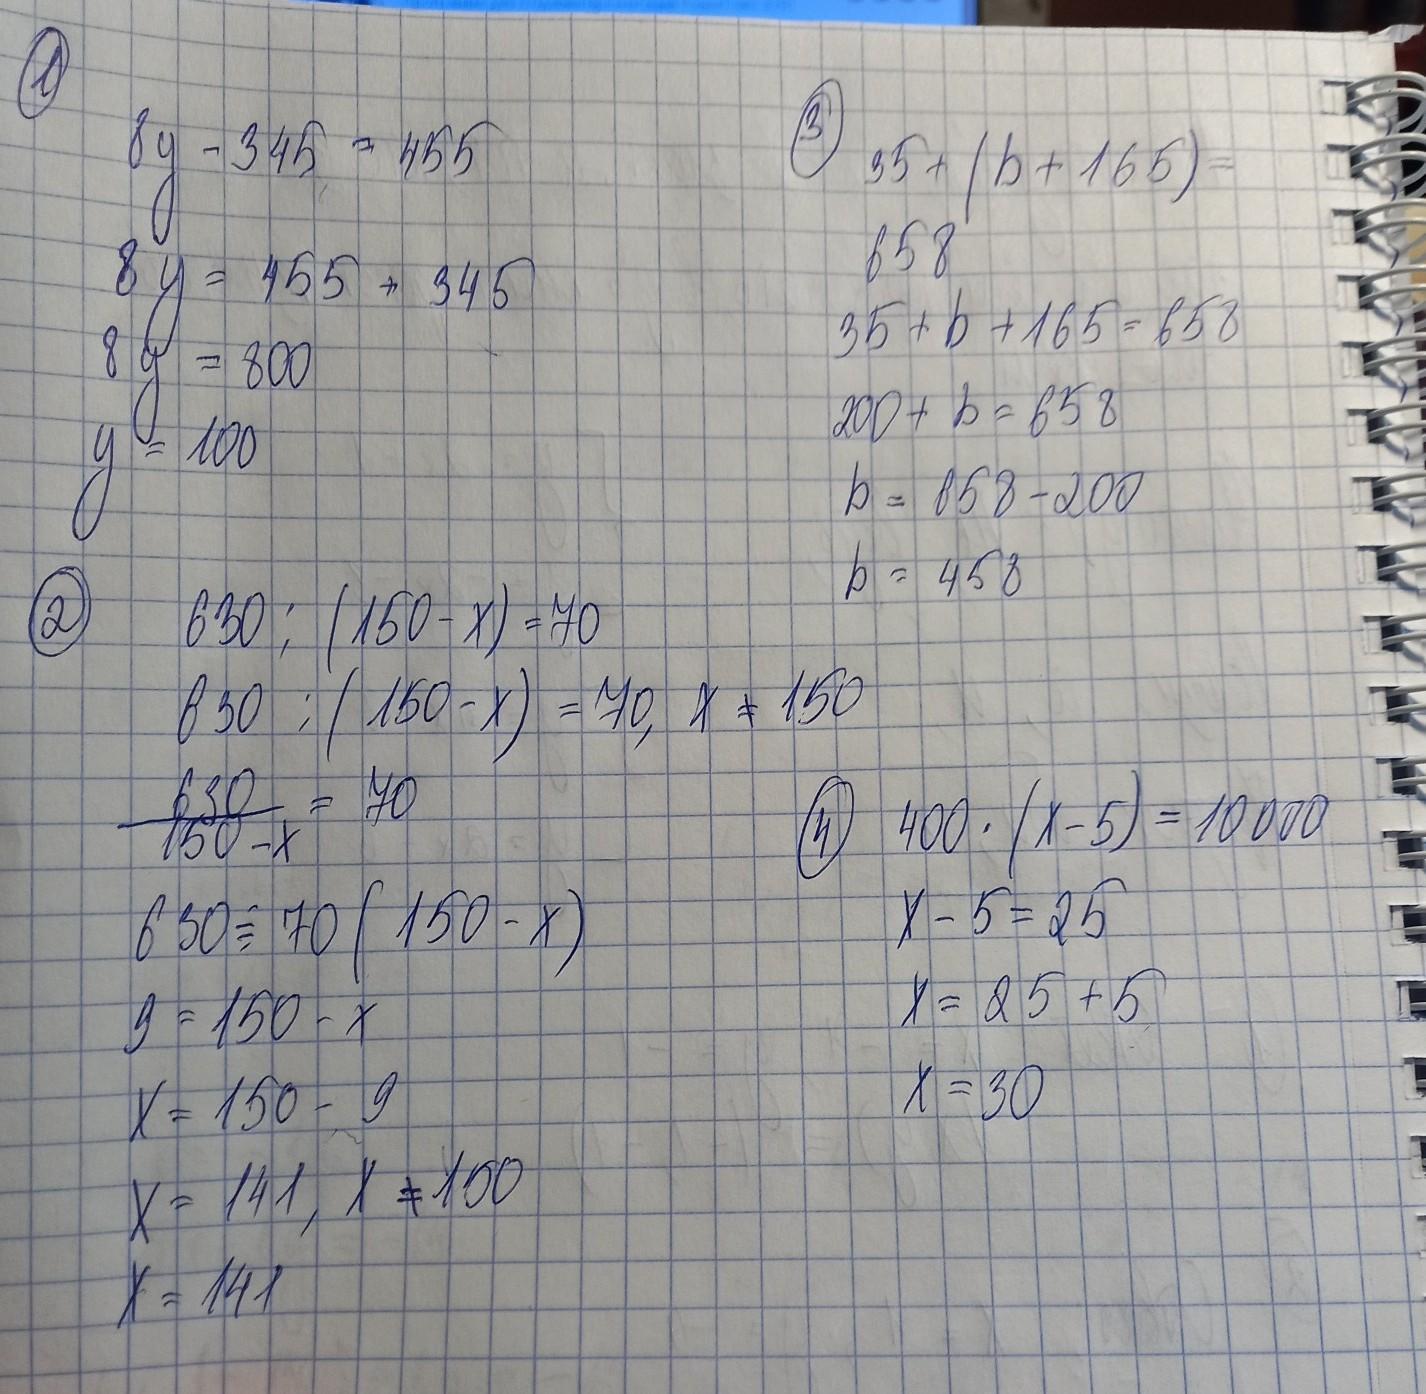 1
8y - 345 = 455
8y = 455 + 345
8y = 800
y = 100
2
630 : (150 - x) = 70
630 : (150 - x) = 70, x ≠ 150
630
150 - x = 70
630 = 70 (150 - x)
9 = 150 - x
x = 150 - 9
x = 141, x ≠ 150
x = 141
3
35 + (b + 165) =
658
35 + b + 165 = 658
200 + b = 658
b = 658 - 200
b = 458
4
400 · (x - 5) = 10000
x - 5 = 25
x = 25 + 5
x = 30